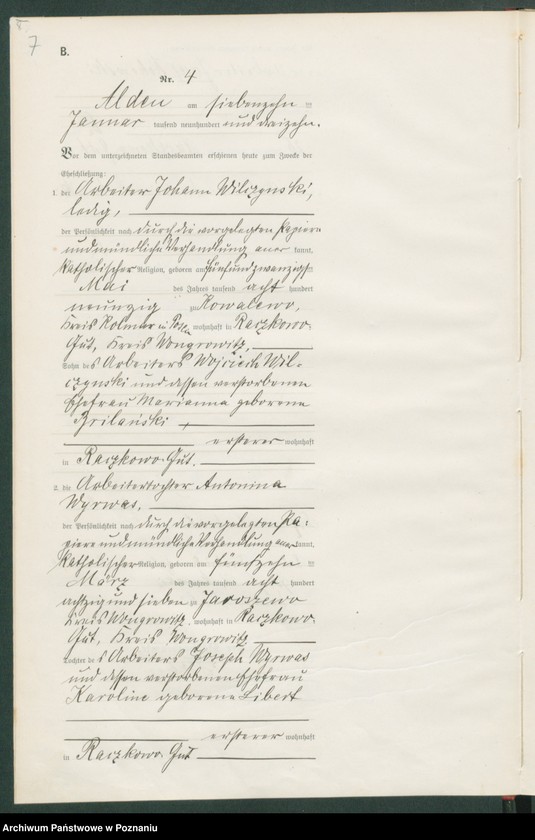 7
B.
Nr. 4
Alden am siebenzehn ten
Januar tausend neunhundert und dreizehn.
Vor dem unterzeichneten Standesbeamten erschienen heute zum Zwecke der
Eheschließung:
1. der Arbeiter Johann Wilczynski,
ledig,
der Persönlichkeit nach durch die vorgelegten Papiere
und mündliche Verhandlung aner kannt,
katholischer Religion, geboren am fünfundzwanzigs ten
Mai des Jahres tausend acht hundert
neunzig zu Kowalewo,
Kreis Kolmar in Posen wohnhaft in Raczkowo-
Gut, Kreis Wongrowitz,
Sohn des Arbeiters Wojciech Wil-
czynski und dessen verstorbenen
Ehefrau Marianna geborene
ersterer wohnhaft
in Raczkowo-Gut.
2. die Arbeitertochter Antonina
Wyrwas,
der Persönlichkeit nach durch die vorgelegten Pa-
piere und mündliche Verhandlung aner kannt,
katholischer Religion, geboren am fünfzehn ten
März des Jahres tausend acht hundert
achtzig und sieben zu Jaroszewo
Kreis Wongrowitz, wohnhaft in Raczkowo-
Gut, Kreis Wongrowitz
Tochter des Arbeiters Joseph Wyrwas
und dessen verstorbenen Ehefrau
Karoline geborene Libert
ersterer wohnhaft
in Raczkowo-Gut
Archiwum Państwowe w Poznaniu